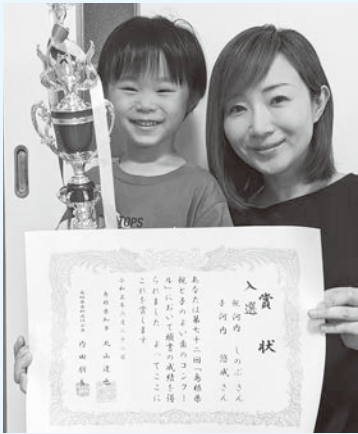 TOPS
賞状
入選
親 河内 しのぶさん
子 河内 悠成さん
あなたは第七十二回「島根県
親と子のよい歯のコンクー
ル」において頭書の成績を得
られました よってここに
これを賞します
島根県知事 丸山達也